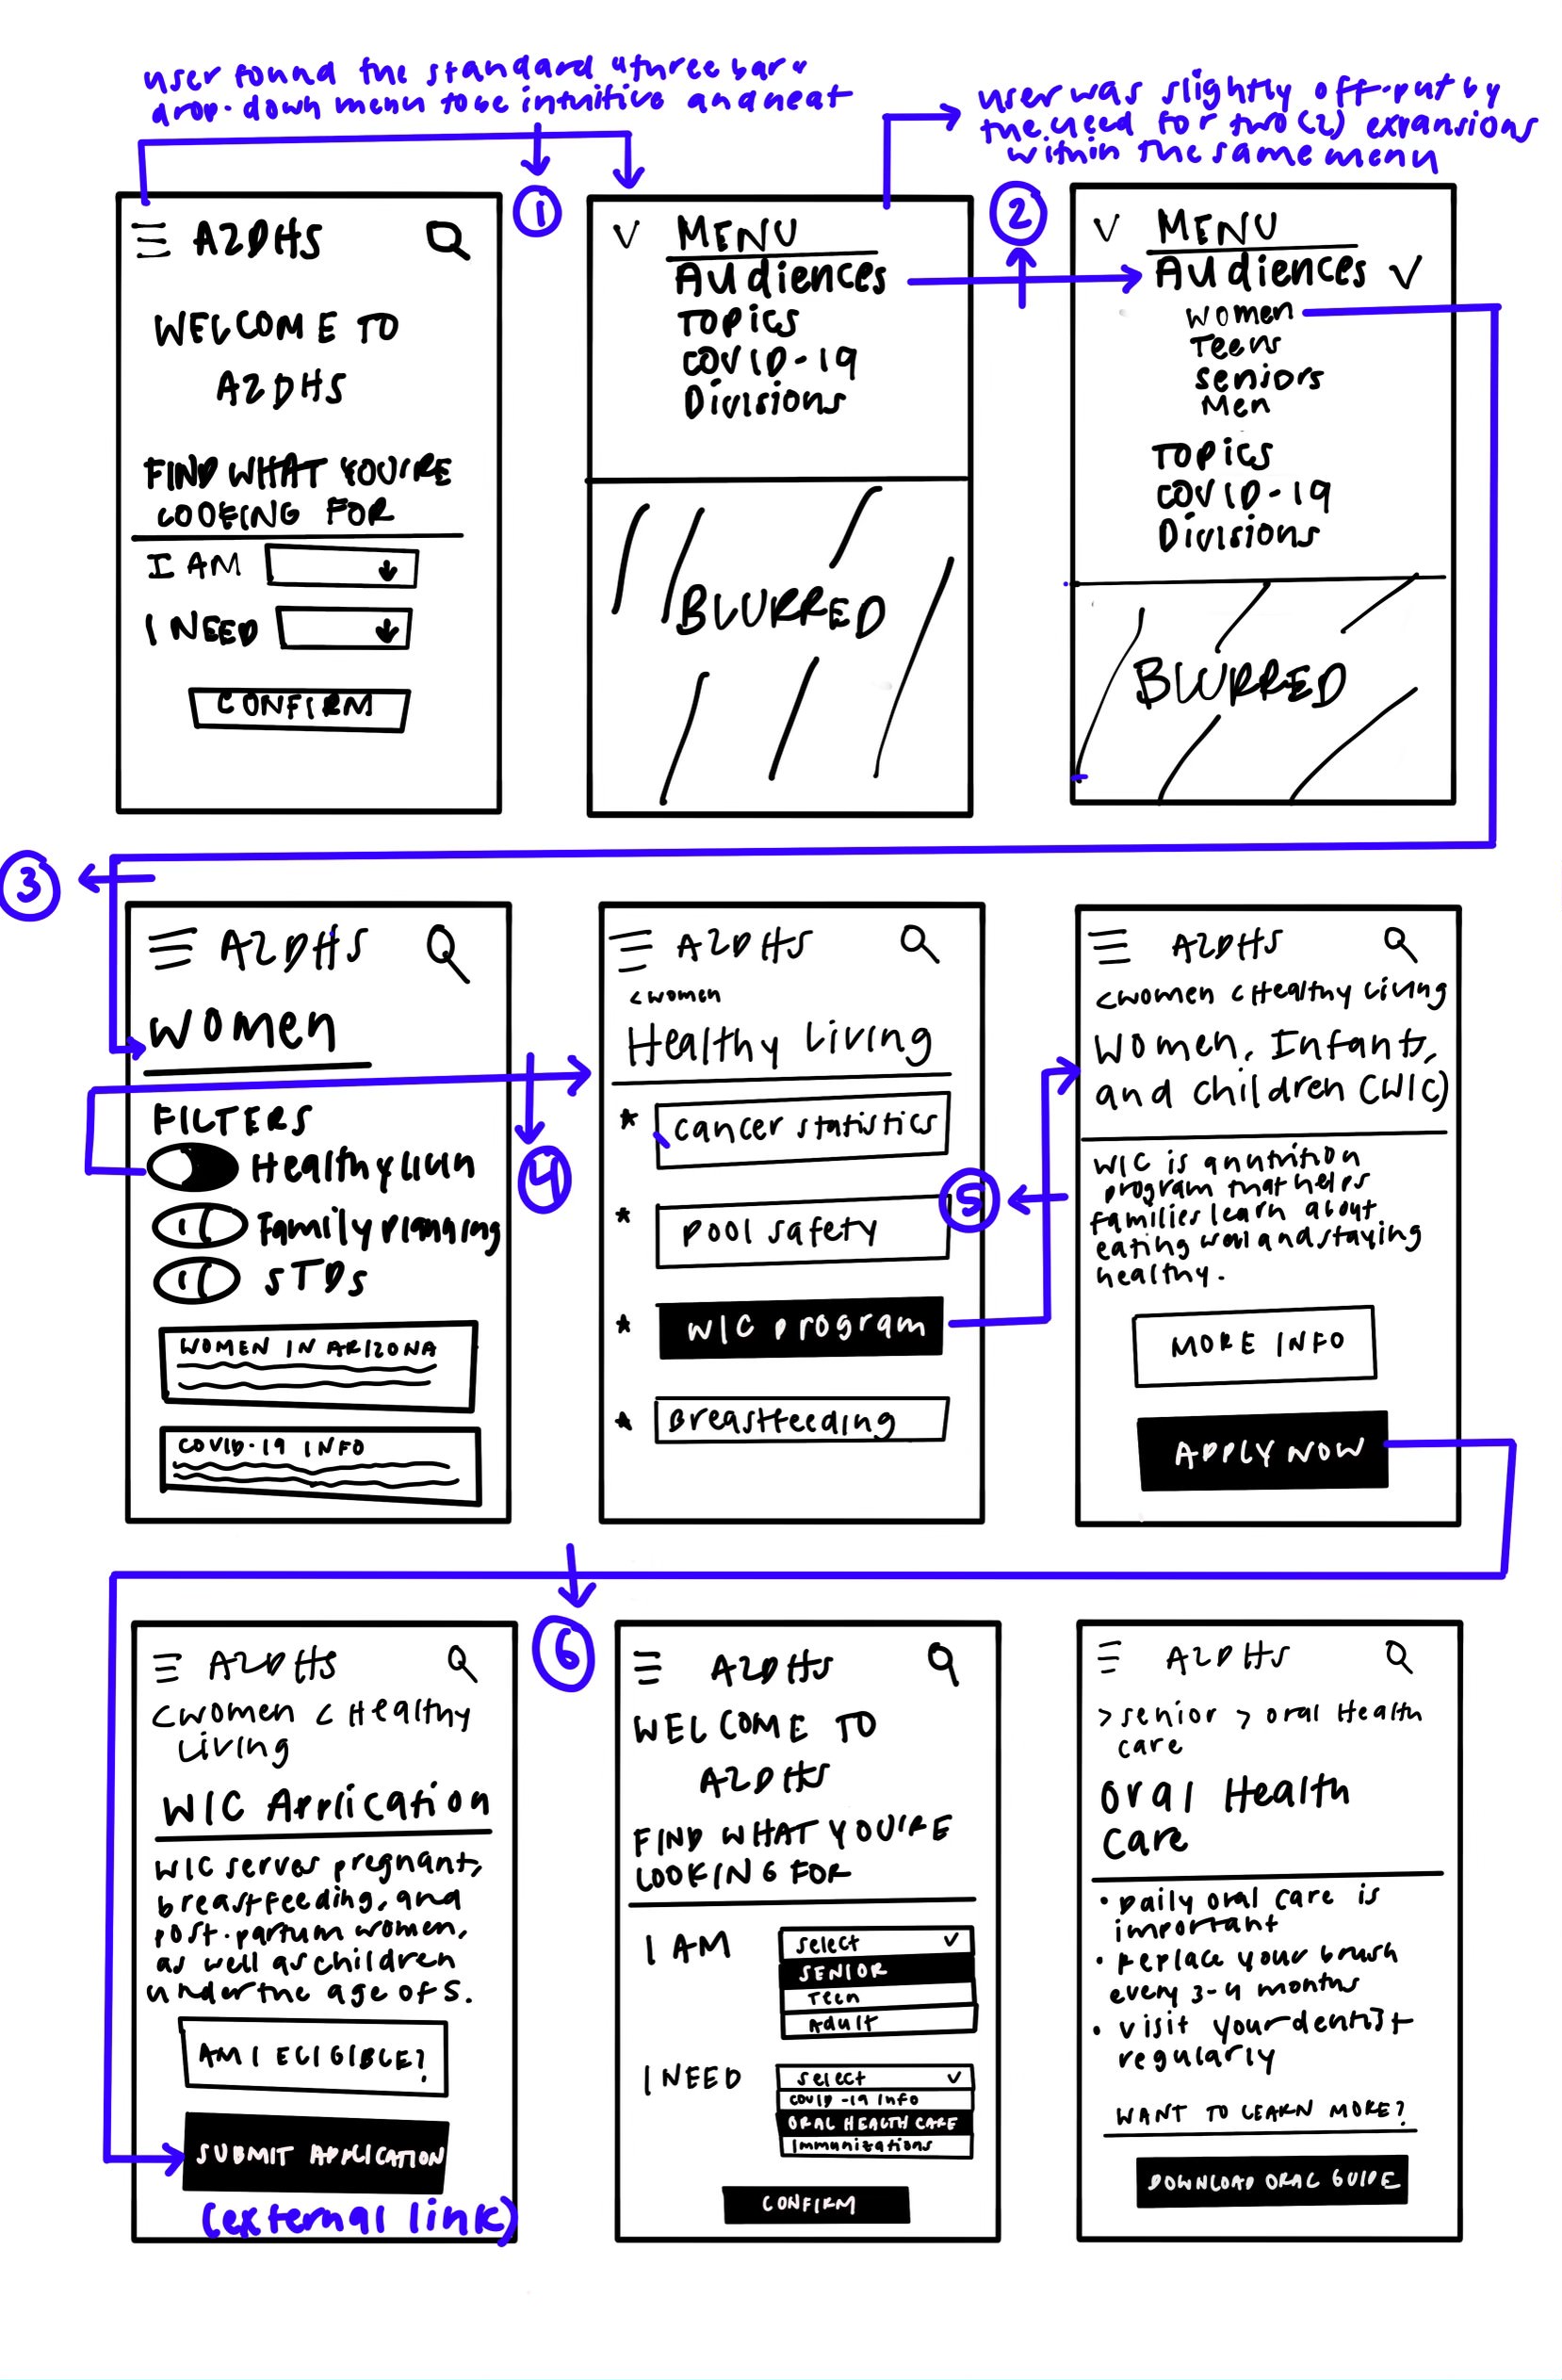 user found the standard "three bar"
drop-down menu to be intuitive and neat
user was slightly off-put by
the need for two (2) expansions
within the same menu
1
2
AZDHS
WELCOME TO
AZDHS
FIND WHAT YOU'RE
LOOKING FOR
I AM
I NEED
CONFIRM
MENU
Audiences
Topics
COVID-19
Divisions
BLURRED
MENU
Audiences
Women
Teens
Seniors
Men
Topics
COVID-19
Divisions
BLURRED
3
AZDHS
Women
FILTERS
Healthy livin
Family planning
STDs
WOMEN IN ARIZONA
COVID-19 INFO
4
AZDHS
<women
Healthy Living
* cancer statistics
* pool safety
* WIC program
* Breastfeeding
5
AZDHS
<women <Healthy Living
Women, Infants,
and children (WIC)
WIC is a nutrition
program that helps
families learn about
eating well and staying
healthy.
MORE INFO
APPLY NOW
6
AZDHS
<women <Healthy
Living
WIC Application
WIC serves pregnant,
breastfeeding, and
post-partum women,
as well as children
under the age of 5.
AM I ELIGIBLE?
SUBMIT APPLICATION
(external link)
AZDHS
WELCOME TO
AZDHS
FIND WHAT YOU'RE
LOOKING FOR
I AM
select
SENIOR
Teen
Adult
I NEED
select
COVID-19 Info
ORAL HEALTH CARE
Immunizations
CONFIRM
AZDHS
>senior > oral Health
care
Oral Health
Care
• Daily oral care is
important
• Replace your brush
every 3-4 months
• visit your dentist
regularly
WANT TO LEARN MORE?
DOWNLOAD ORAL GUIDE